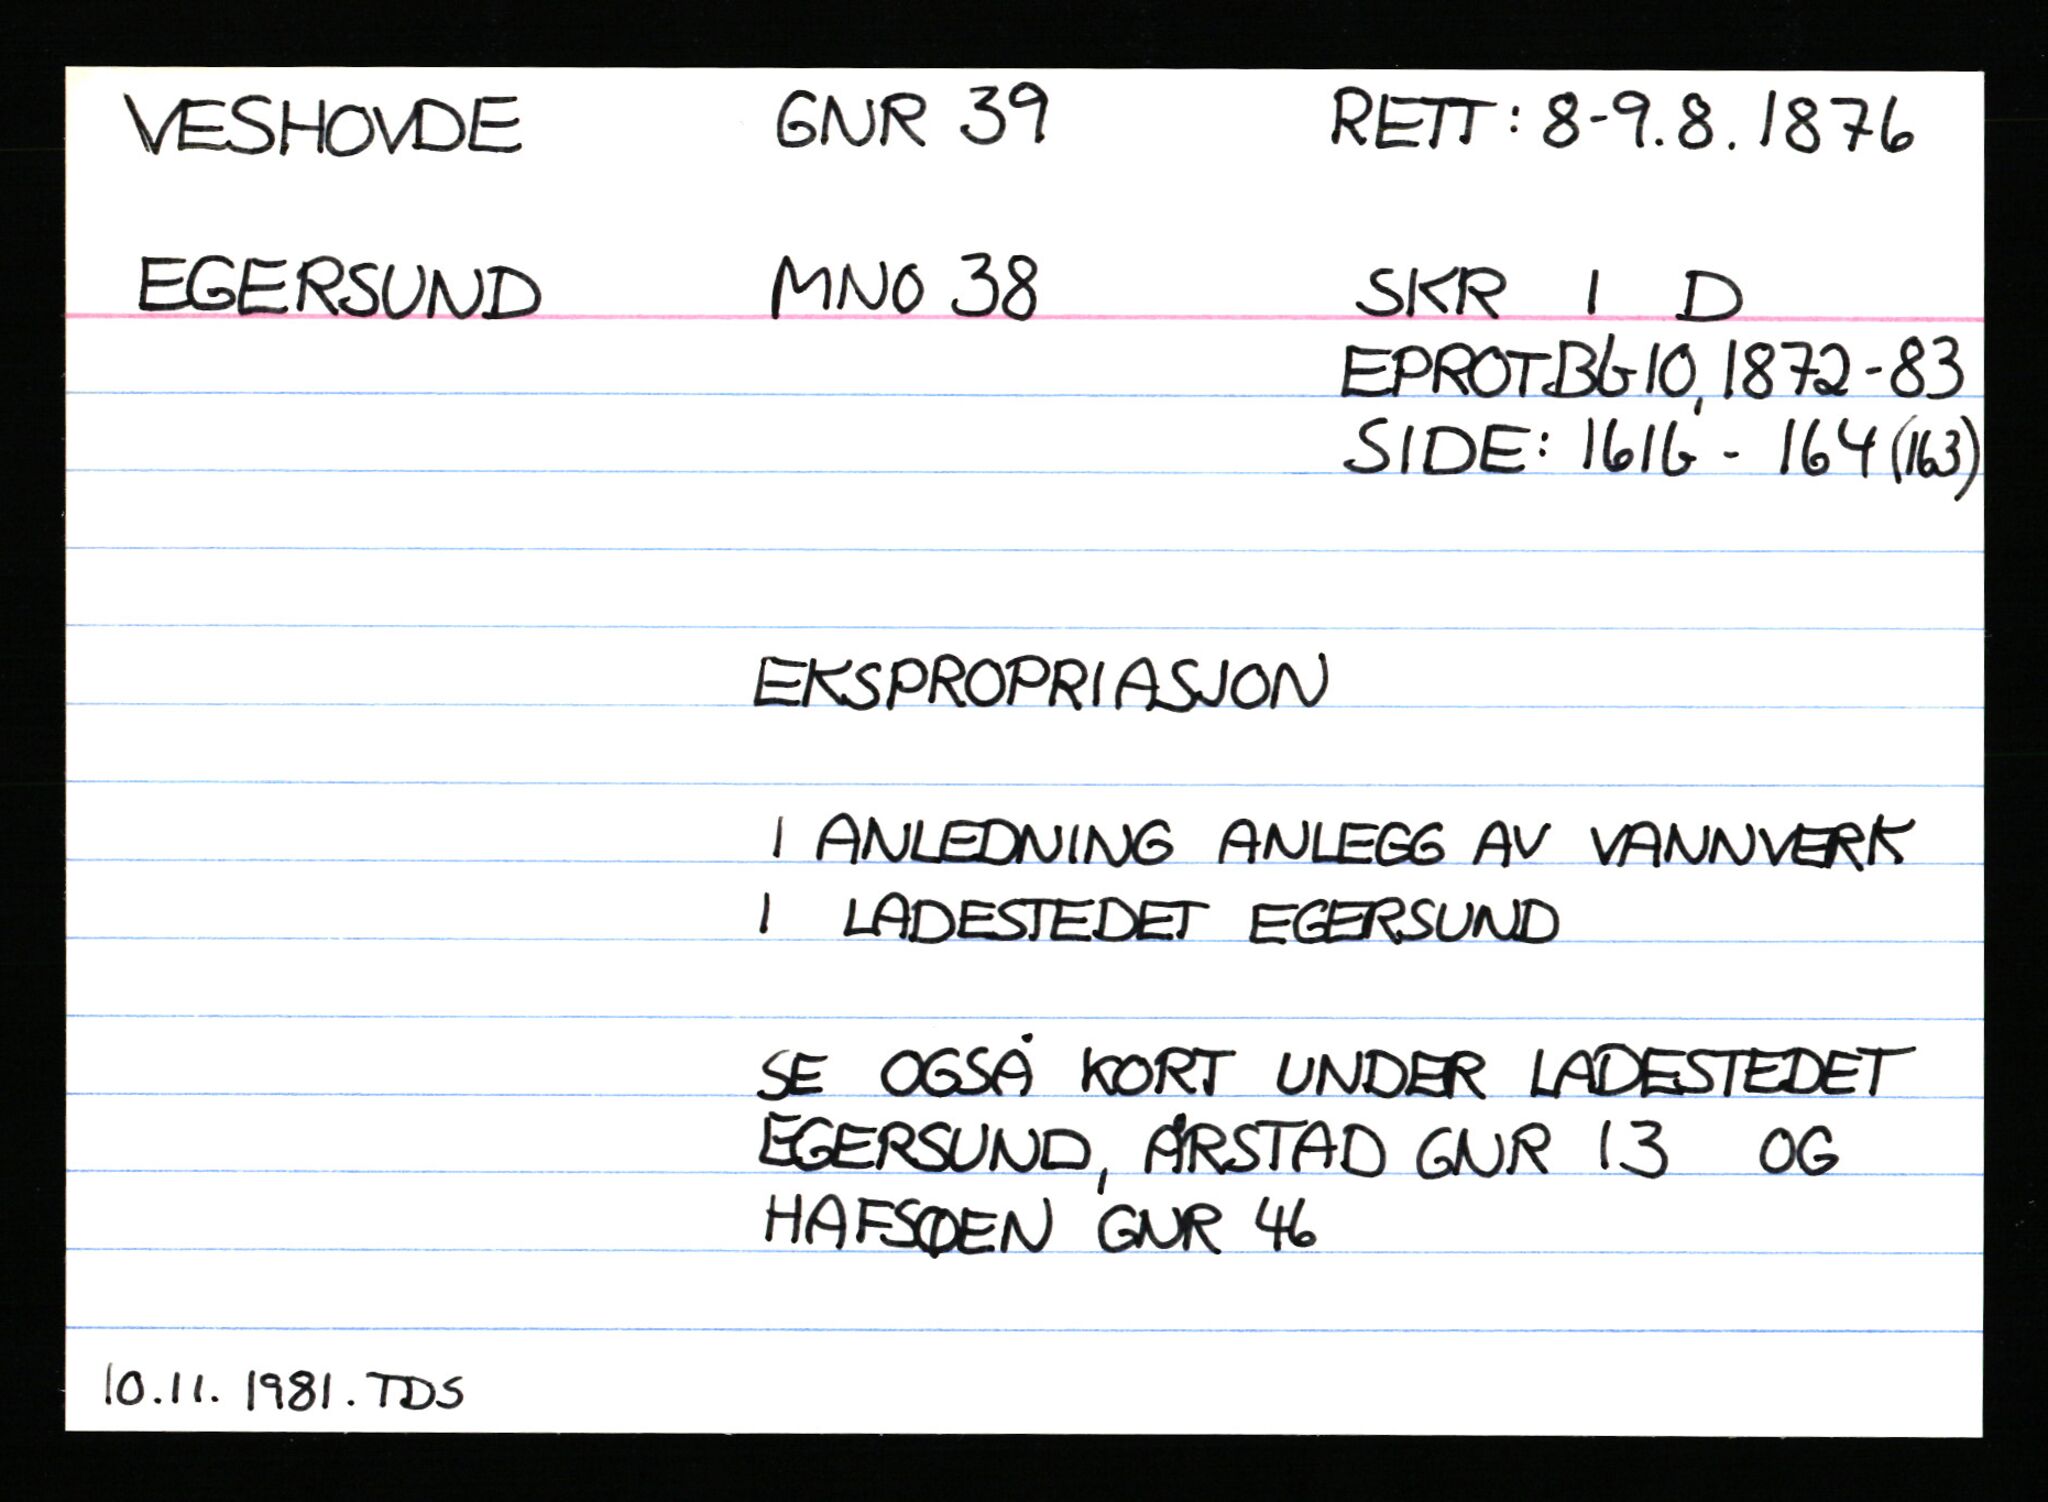 VESHOVDE GNR 39 RETT: 8-9.8.1876
EGERSUND MNO 38 SKR I D
EPROT.B610, 1872-83
SIDE: 161b - 164 (163)
EKSPROPRIASJON
I ANLEDNING ANLEGG AV VANNVERK
I LADESTEDET EGERSUND
SE OGSÅ KORT UNDER LADESTEDET
EGERSUND, ÅRSTAD GNR 13 OG
HAFSØEN GNR 46
10.11.1981.TDS